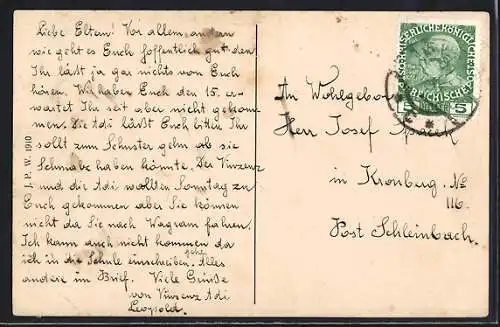 Liebe Eltern! Vor allem andern
wie geht es Euch hoffentlich gut den
Ihr laßt ja gar nichts von Euch
hören. Wir haben Euch den 15. er-
wartet Ihr seit aber nicht gekom-
men. Die Adi läßt Euch bitten Ihr
sollt zum Schuster gehn ob sie
Schuhe haben könnte. Der Vinzenz
und die Adi wollten Sonntag zu
Euch gekommen aber Sie können
nicht da Sie nach Wagram fahren.
Ich kann auch nicht kommen da
ich in die Schule einschreiben geh. Alles
andere im Brief. Viele Grüße
von Vinzenz Adi
Leopold.
J. P. W. 1910
An Wohlgebo
Herr Josef
in Kronberg No
116.
Post Schleinbach.
KAISERLICHE KÖNIGLICHE ÖSTERREICHISCHE
5